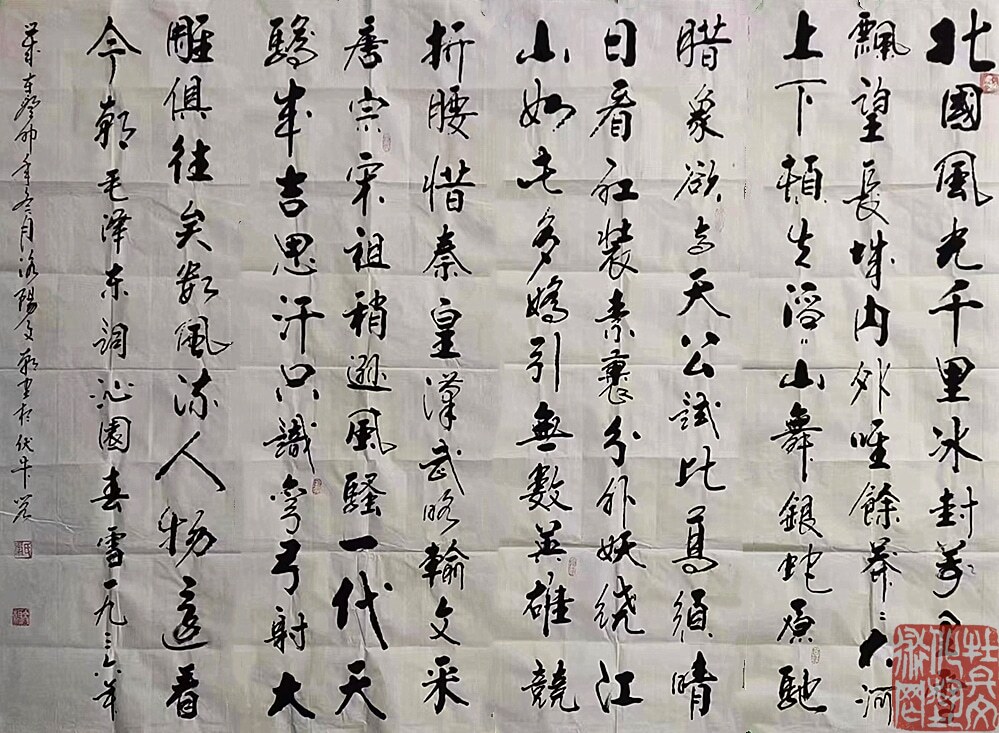 北國風光千里冰封萬里雪
飄望長城內外唯餘莽々大河
上下頓失滔々山舞銀蛇原馳
腊象欲与天公試比高須晴
日看红装素裹分外妖绕江
山如此多嬌引無數英雄競
折腰惜秦皇漢武略輸文采
唐宗宋祖稍遜風騷一代天
驕成吉思汗只識彎弓射大
雕俱往矣數風流人物還看
今朝毛泽东詞沁園春雪一九三六年
歲在癸卯年冬月洛陽文書於伏牛